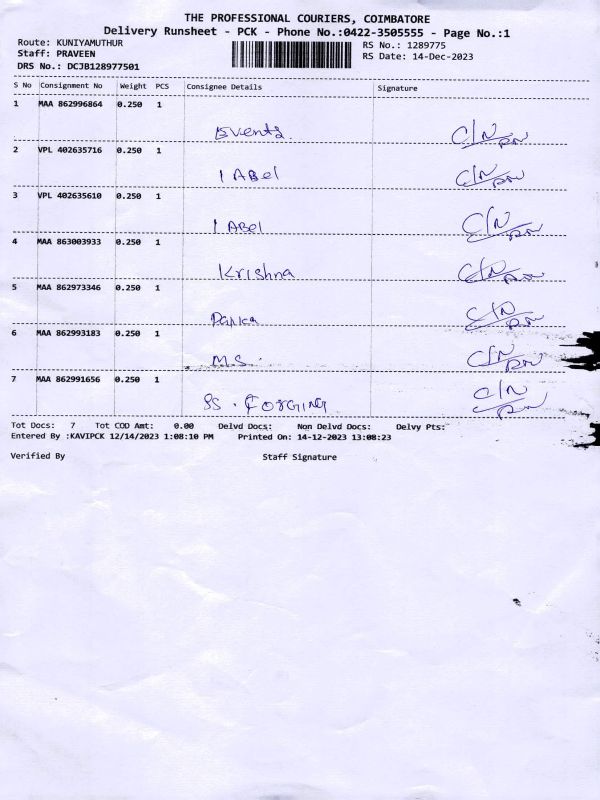 THE PROFESSIONAL COURIERS, COIMBATORE
Delivery Runsheet - PCK - Phone No.:0422-3505555 - Page No.:1
Route: KUNIYAMUTHUR RS No.: 1289775
Staff: PRAVEEN RS Date: 14-Dec-2023
DRS No.: DCJB128977501
S No Consignment No Weight PCS Consignee Details Signature
1 MAA 862996864 0.250 1
Events C/N
2 VPL 402635716 0.250 1
I ABel C/N
3 VPL 402635610 0.250 1
I ABel C/N
4 MAA 863003933 0.250 1
Krishna C/N
5 MAA 862973346 0.250 1
C/N
6 MAA 862993183 0.250 1
M.S. C/N
7 MAA 862991656 0.250 1
SS. FORGING C/N
Tot Docs: 7 Tot COD Amt: 0.00 Delvd Docs: Non Delvd Docs: Delvy Pts:
Entered By :KAVIPCK 12/14/2023 1:08:10 PM Printed On: 14-12-2023 13:08:23
Verified By Staff Signature